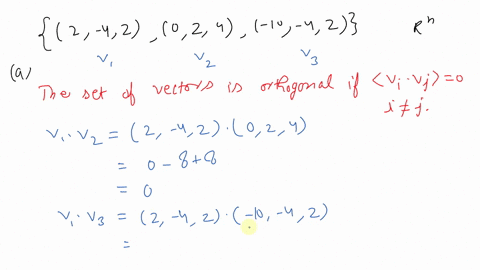 {(2, -4, 2), (0, 2, 4), (-10, -4, 2)} Rⁿ
v₁ v₂ v₃
(a)
The set of vectors is orthogonal if <vᵢ·vⱼ> = 0
i ≠ j.
v₁·v₂ = (2, -4, 2)·(0, 2, 4)
= 0 - 8 + 8
= 0
v₁·v₃ = (2, -4, 2)·(-10, -4, 2)
=